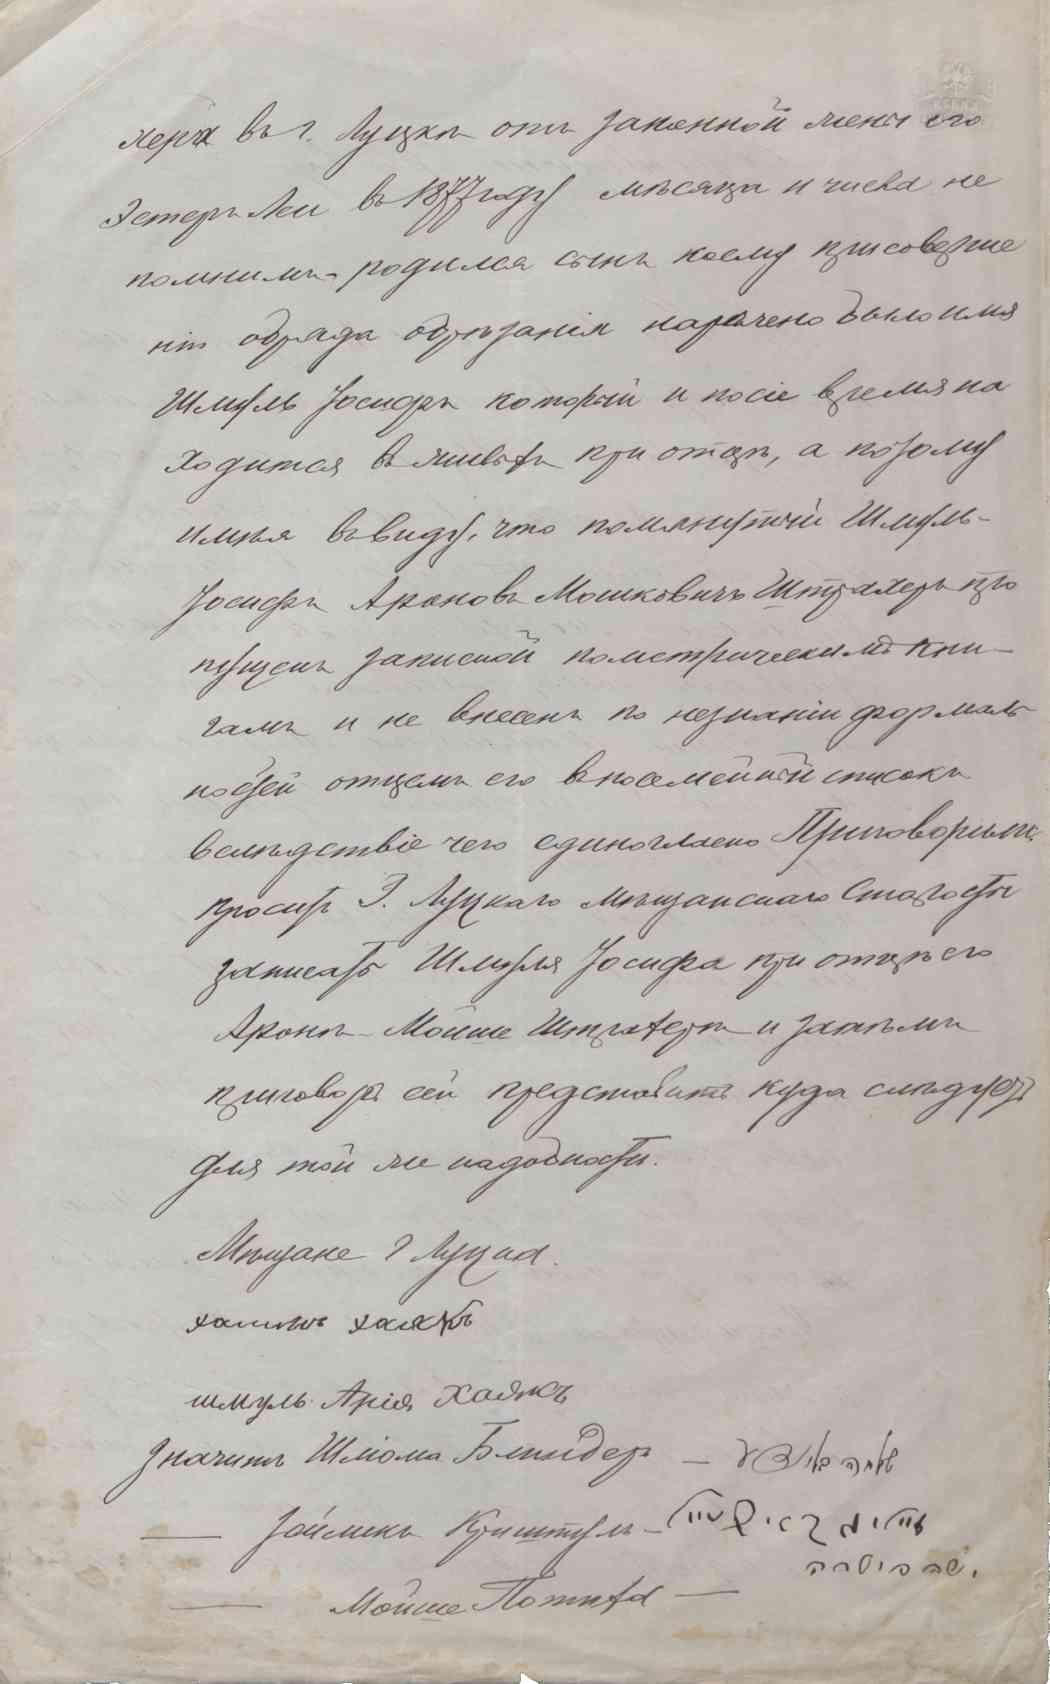 херъ въ г. Луцкѣ отъ законной жены его
Эстеръ Леи въ 1877 году мѣсяца и числа не
помнимъ родился сынъ коему присоверше
ніи обряда обрѣзанія наречено было имя
Шмуль Іосифъ который и посіе время на
ходится въ живыхъ при отцѣ, а потому
имѣя въ виду, что помянутый Шмуль-
Іосифъ Ароновъ Мошковичъ Штрахеръ про
пущенъ запиской пометрическимъ кни-
гамъ и не внесенъ по незнанію формаль
ностей отцемъ его въ посемейный списокъ
вслѣдствіе чего единогласно Приговорили:
просить Г. Луцкаго Мѣщанскаго Старосты
записать Шмуля Іосифа при отцѣ его
Аронѣ-Мойше Штрахеръ и затѣмъ
приговоръ сей представить куда слѣдуетъ
для той же надобности.
Мѣщане г Луцка.
хаимъ хаякъ
шмуль Арія Хаякъ
Значитъ Шліома Блиндеръ —
— Зейликъ Криштуль —
— Мойше Потиха —